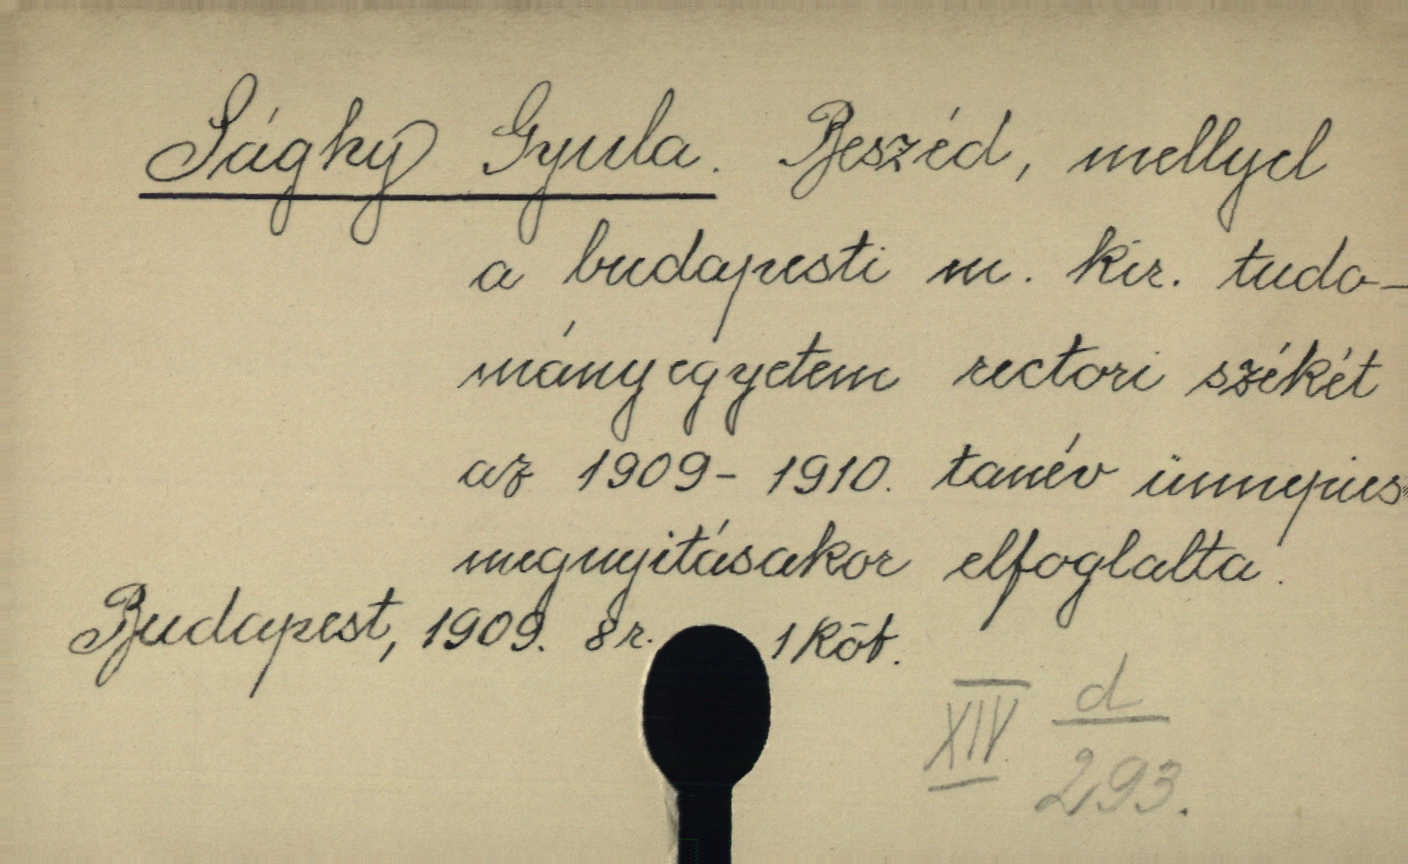 Sághy Gyula. Beszéd, mellyel
a budapesti m. kir. tudo-
mányegyetem rectori székét
az 1909-1910. tanév ünnepies
megnyitásakor elfoglalta.
Budapest, 1909. 8r. 1 köt.
XIV d/293.